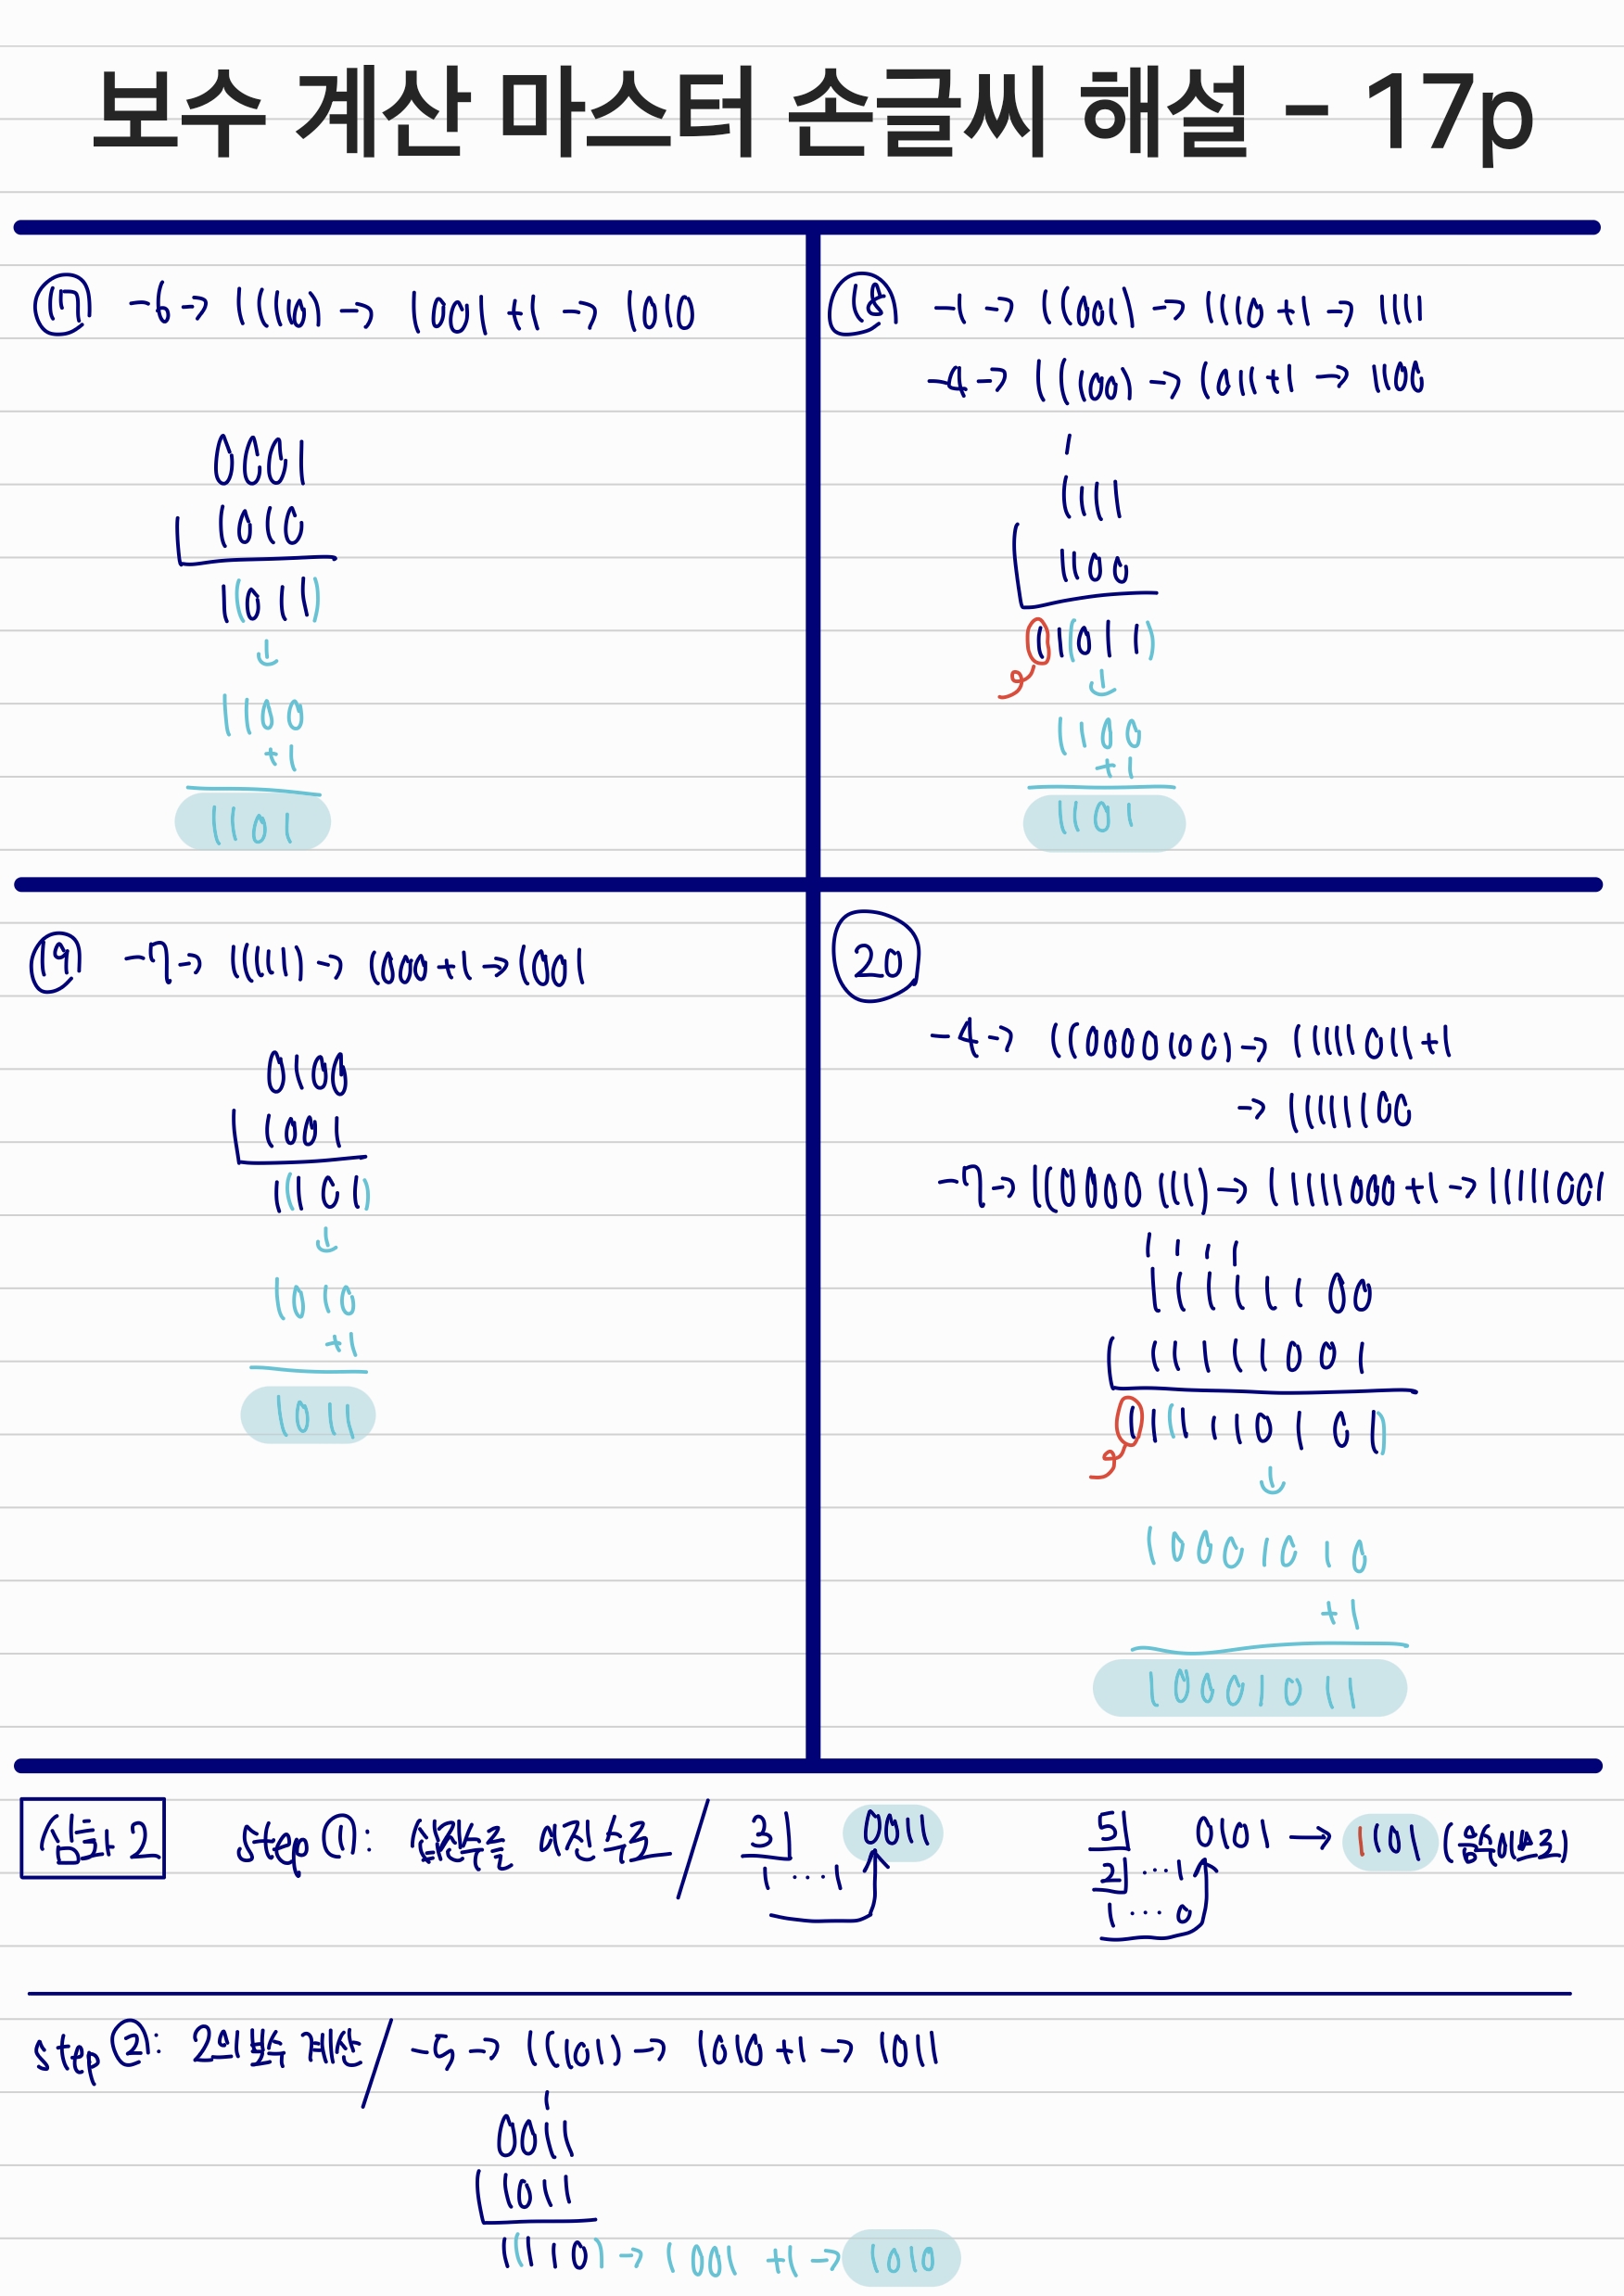 보수 계산 마스터 손글씨 해설 - 17p
⑰ -6 → 1(110) → 1001+1 → 1010
0001
1010
1(011)
↓
1100
+1
1101
⑱ -1 → 1(001) → 1110+1 → 1111
-4 → 1(100) → 1011+1 → 1100
1
1111
1100
11(011)
↓
1100
+1
1101
⑲ -7 → 1(111) → 1000+1 → 1001
0100
1001
1(101)
↓
1010
+1
1011
⑳
-4 → 1(0000100) → 11111011+1
→ 11111100
-7 → 1(0000111) → 11111000+1 → 11111001
1 1 1 1
11111100
11111001
11(1110101)
↓
10001010
+1
10001011
심화 2 step ①: 십진수를 이진수로 / 3 0011 5 0101 → 1101 (음수이므로)
1 ... 1 2 ... 1
1 ... 0
step ②: 2의 보수 계산 / -5 → 1(101) → 1010+1 → 1011
1
0011
1011
1(110) → 1001 +1 → 1010